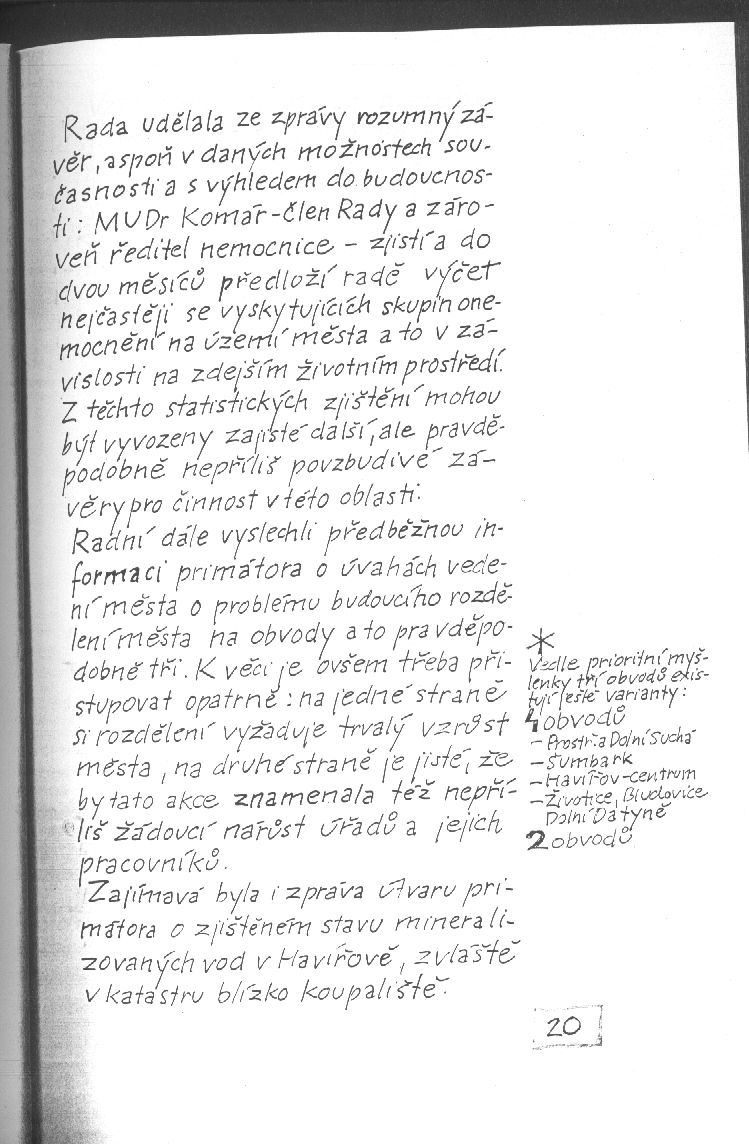 Rada udělala ze zprávy rozumný zá-
věr, aspoň v daných možnostech sou-
časnosti a s výhledem do budoucnos-
ti: MUDr Komár-člen Rady a záro-
veň ředitel nemocnice - zjistí a do
dvou měsíců předloží radě výčet
nejčastěji se vyskytujících skupin one-
mocnění na území města a to v zá-
vislosti na zdejším životním prostředí.
Z těchto statistických zjištění mohou
být vyvozeny zajisté další, ale pravdě-
podobně nepříliš povzbudivé zá-
věry pro činnost v této oblasti.
Radní dále vyslechli předběžnou in-
formaci primátora o úvahách vede-
ní města o problému budoucího rozdě-
lení města na obvody a to pravděpo-
dobně tři. K věci je ovšem třeba při-
stupovat opatrně: na jedné straně
si rozdělení vyžaduje trvalý vzrůst
města, na druhé straně je jisté, že
by tato akce znamenala též nepří-
liš žádoucí nárůst úřadů a jejich
pracovníků.
Zajímavá byla i zpráva útvaru pri-
mátora o zjištěném stavu minerali-
zovaných vod v Havířově, zvláště
v katastru blízko koupaliště.
*
Vedle prioritní myš-
lenky tří obvodů exis-
tují ještě varianty:
4 obvodů
- Prostř. a Dolní Suchá
- Šumbark
- Havířov-centrum
- Životice, Bludovice
Dolní Datyně
2 obvodů
20